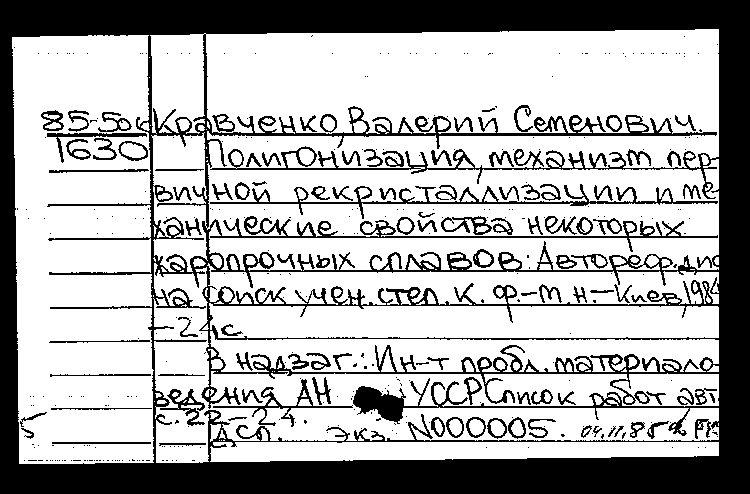 85-50к Кравченко, Валерий Семенович.
1630 Полигонизация, механизм пер-
вичной рекристаллизации и ме-
ханические свойства некоторых
жаропрочных сплавов: Автореф. дис
на соиск. учен. степ. к. ф.-м. н. - Киев, 1984
- 24 с.
В надзаг.: Ин-т пробл. материало-
ведения АН УССР. Список работ авт.
с. 22-24.
ДСП. Экз. N000005. 04.11.85